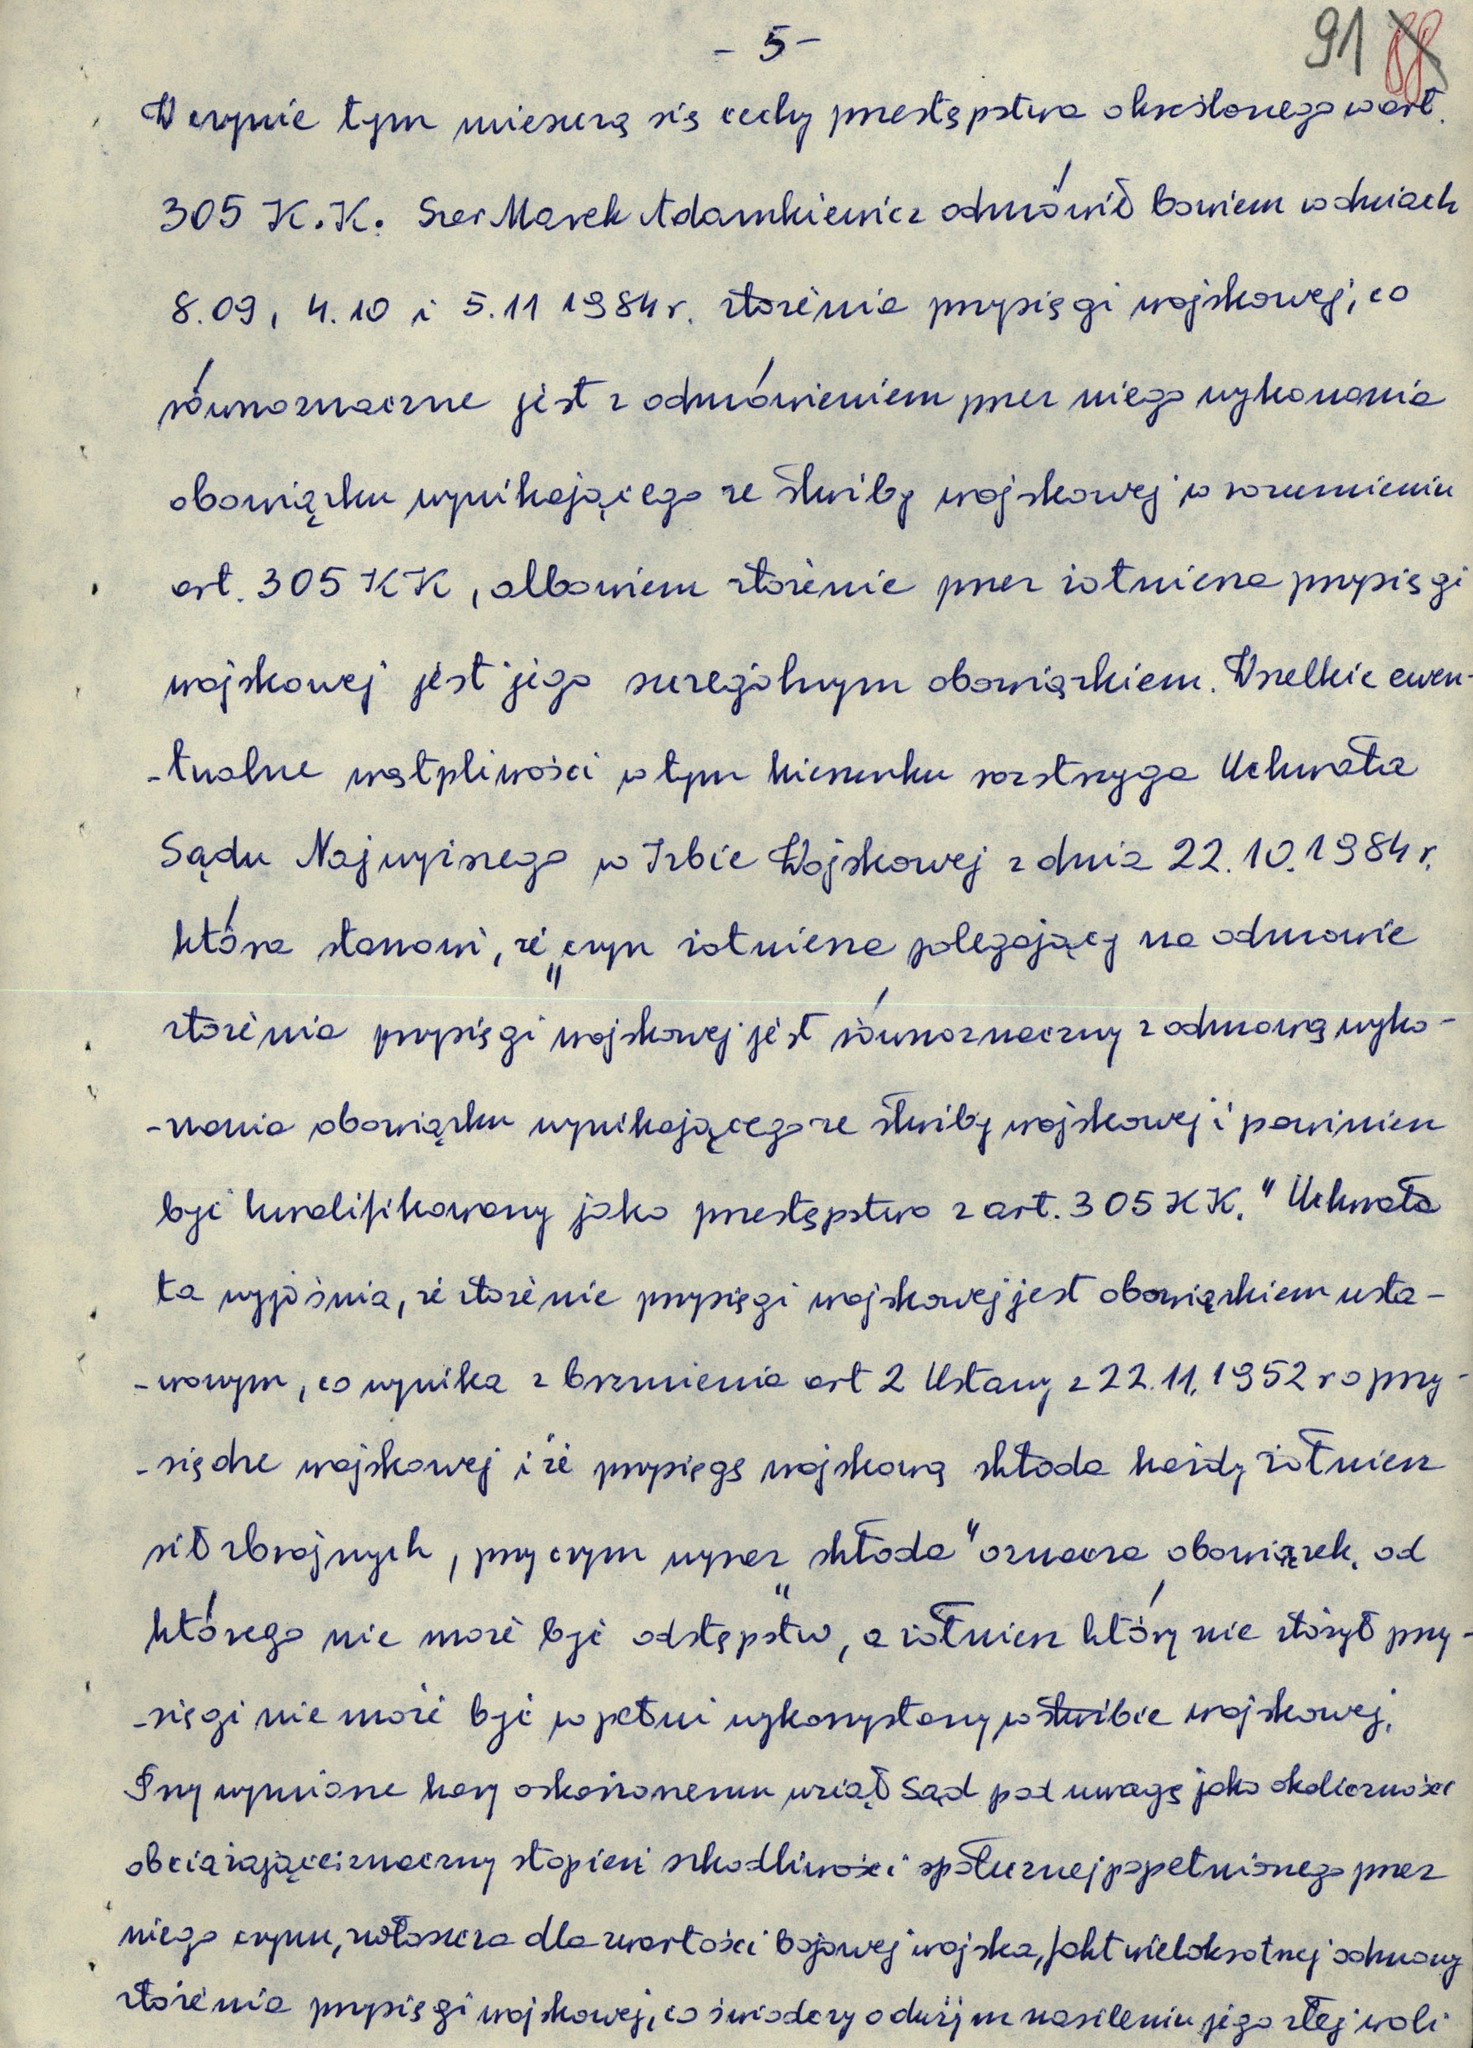 - 5 -
91 88
W czynie tym mieszczą się cechy przestępstwa określonego w art.
305 K.K. Szer Marek Adamkiewicz odmówił bowiem w dniach
8.09, 4.10 i 5.11 1984 r. złożenia przysięgi wojskowej, co
równoznaczne jest z odmówieniem przez niego wykonania
obowiązku wynikającego ze służby wojskowej w rozumieniu
art. 305 KK, albowiem złożenie przez żołnierza przysięgi
wojskowej jest jego szczególnym obowiązkiem. Wszelkie ewen-
-tualne wątpliwości w tym kierunku rozstrzyga Uchwała
Sądu Najwyższego w Izbie Wojskowej z dnia 22.10.1984 r.
która stanowi, że „czyn żołnierza polegający na odmowie
złożenia przysięgi wojskowej jest równoznaczny z odmową wyko-
-nania obowiązku wynikającego ze służby wojskowej i powinien
być kwalifikowany jako przestępstwo z art. 305 KK." Uchwała
ta wyjaśnia, że złożenie przysięgi wojskowej jest obowiązkiem usta-
-wowym, co wynika z brzmienia art 2 Ustawy z 22.11.1952 r o przy-
-siędze wojskowej i że przysięgę wojskową składa każdy żołnierz
sił zbrojnych, przy czym wyraz „składa" oznacza obowiązek, od
którego nie może być odstępstw, a żołnierz który nie złożył przy-
-sięgi nie może być w pełni wykorzystany w służbie wojskowej.
Przy wymiarze kary oskarżonemu wziął Sąd pod uwagę jako okoliczności
obciążające: znaczny stopień szkodliwości społecznej popełnionego przez
niego czynu, zwłaszcza dla wartości bojowej wojska, fakt wielokrotnej odmowy
złożenia przysięgi wojskowej, co świadczy o dużym nasileniu jego złej woli